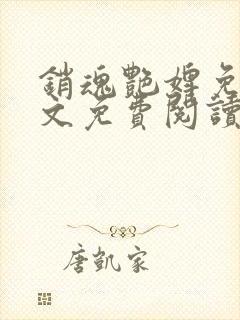 銷魂艷婢免
文免費閱讀
唐凱家